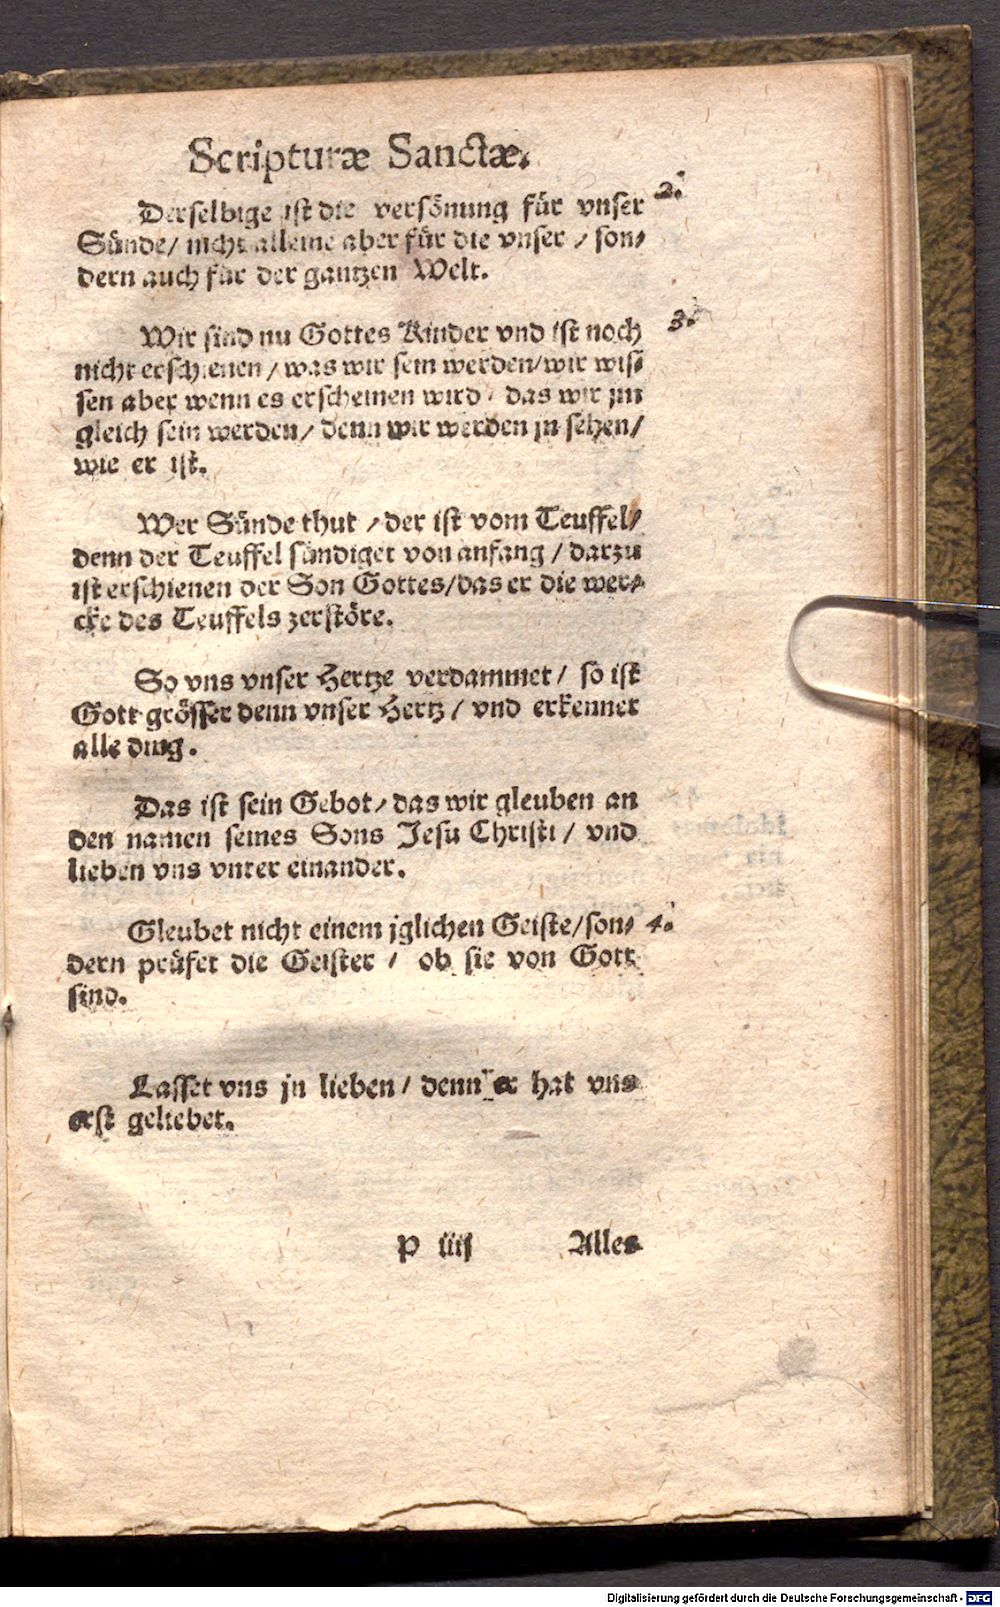 Scripturæ Sanctæ.
Derselbige ist die versönung für vnser 2.
Sünde/ nicht alleine aber für die vnser / son⸗
dern auch für der gantzen Welt.
Wir sind nu Gottes Kinder vnd ist noch 3.
nicht erschienen / was wir sein werden/wir wis⸗
sen aber wenn es erscheinen wird / das wir jm
gleich sein werden/ denn wir werden jn sehen/
wie er ist.
Wer Sünde thut / der ist vom Teuffel/
denn der Teuffel sündiget von anfang / darzu
ist erschienen der Son Gottes/das er die wer⸗
cke des Teuffels zerstöre.
So vns vnser Hertze verdammet/ so ist
Gott grösser denn vnser Hertz / vnd erkennet
alle ding.
Das ist sein Gebot/ das wir gleuben an
den namen seines Sons Jesu Christi / vnd
lieben vns vnter einander.
Gleubet nicht einem jglichen Geiste/son⸗ 4.
dern prüfet die Geister / ob sie von Gott
sind.
Lasset vns jn lieben / denn er hat vns
erst geliebet.
P iiij Alles
Digitalisierung gefördert durch die Deutsche Forschungsgemeinschaft - DFG